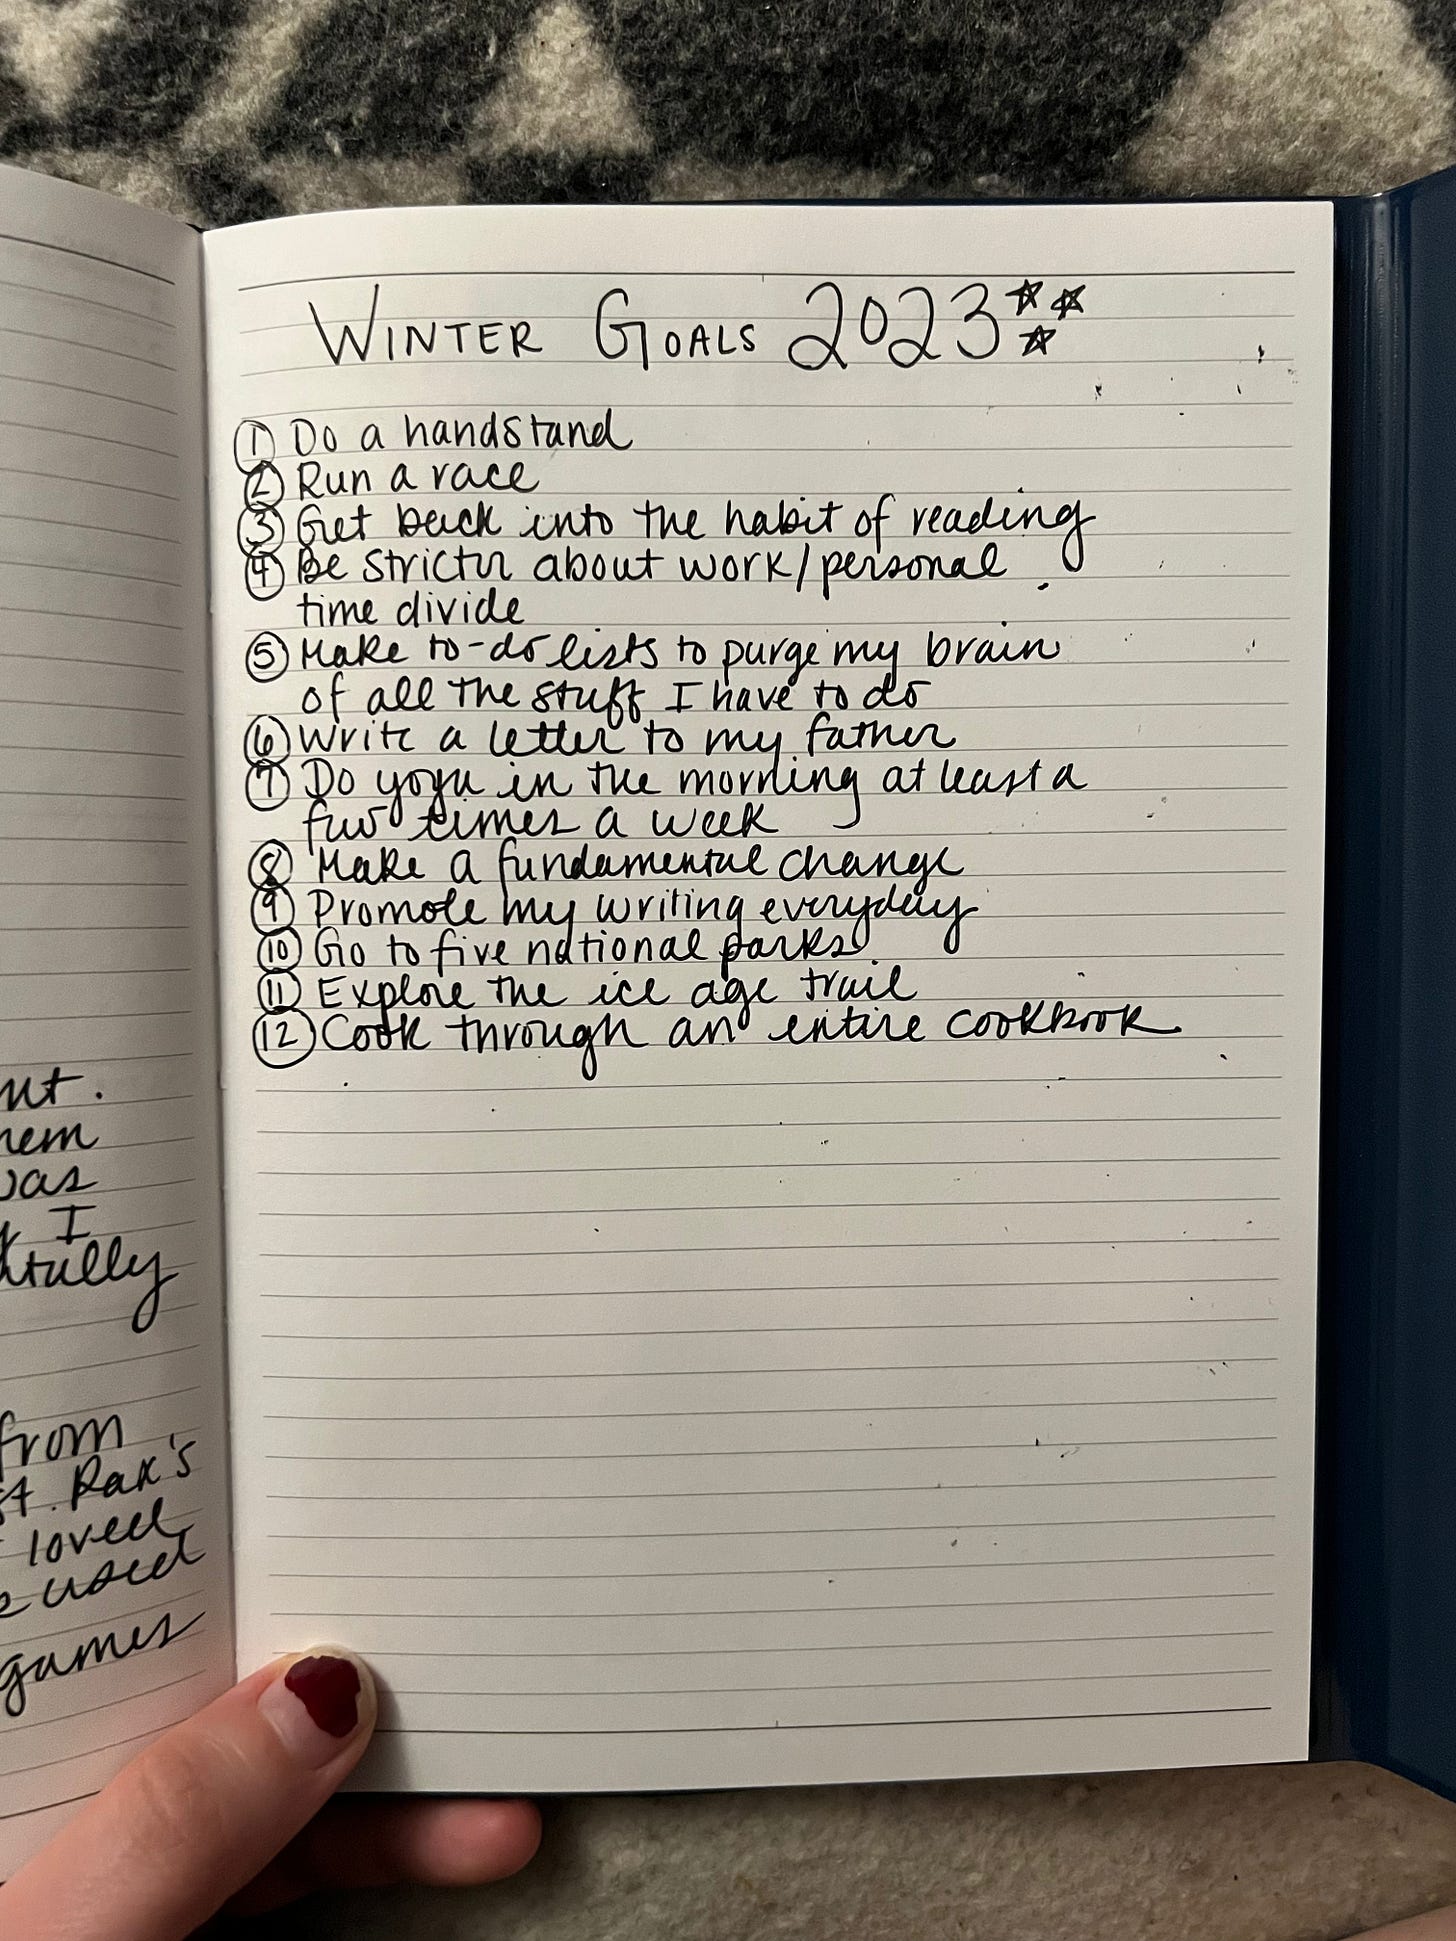 WINTER GOALS 2023
① Do a handstand
② Run a race
③ Get back into the habit of reading
④ Be stricter about work/personal
time divide
⑤ Make to-do lists to purge my brain
of all the stuff I have to do
⑥ Write a letter to my father
⑦ Do yoga in the morning at least a
few times a week
⑧ Make a fundamental change
⑨ Promote my writing everyday
⑩ Go to five national parks
⑪ Explore the ice age trail
⑫ Cook through an entire cookbook
from
loved
used
games